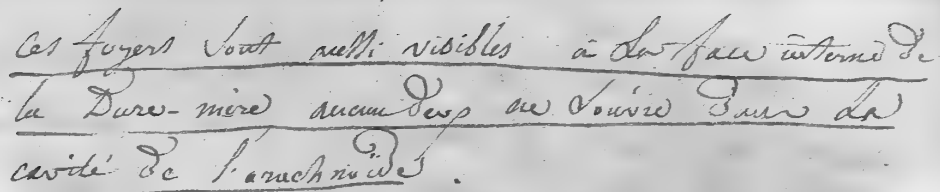 ces foyers sont aussi visibles à la face interne de
la Dure-mère aucun d'eux ne s'ouvre dans la
cavité de l'arachnoïde.